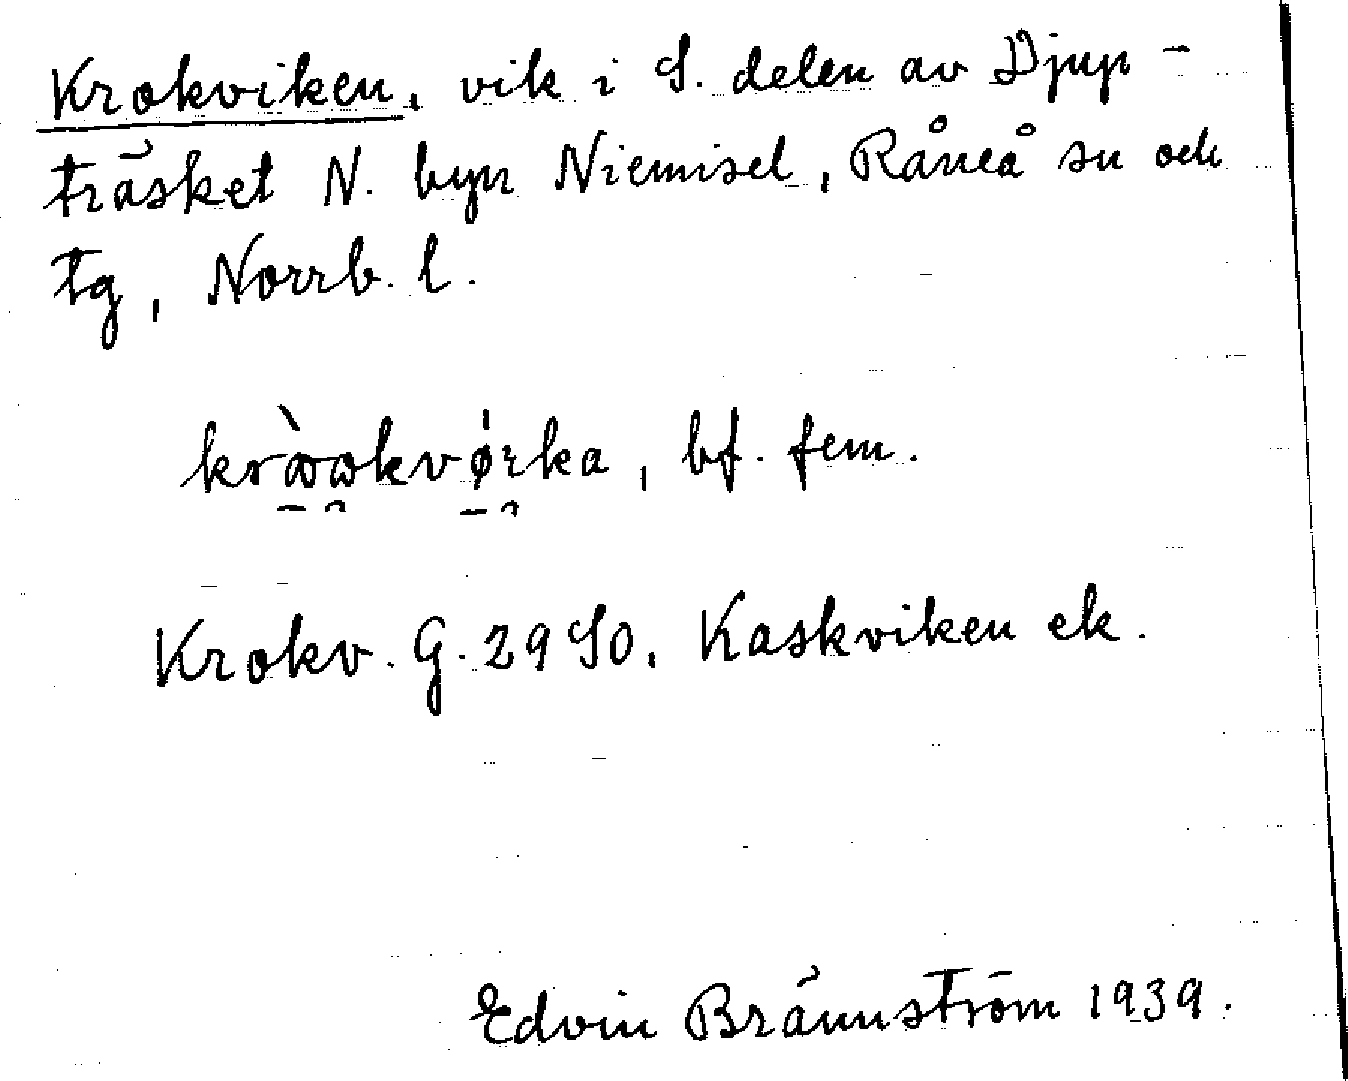 Krokviken, vik i S. delen av Djup-
träsket N. byn Niemisel, Råneå sn och
tg, Norrb. l.
bf. fem.
Krokv. G. 29 SO. Kaskviken ek.
Edvin Brännström 1939.